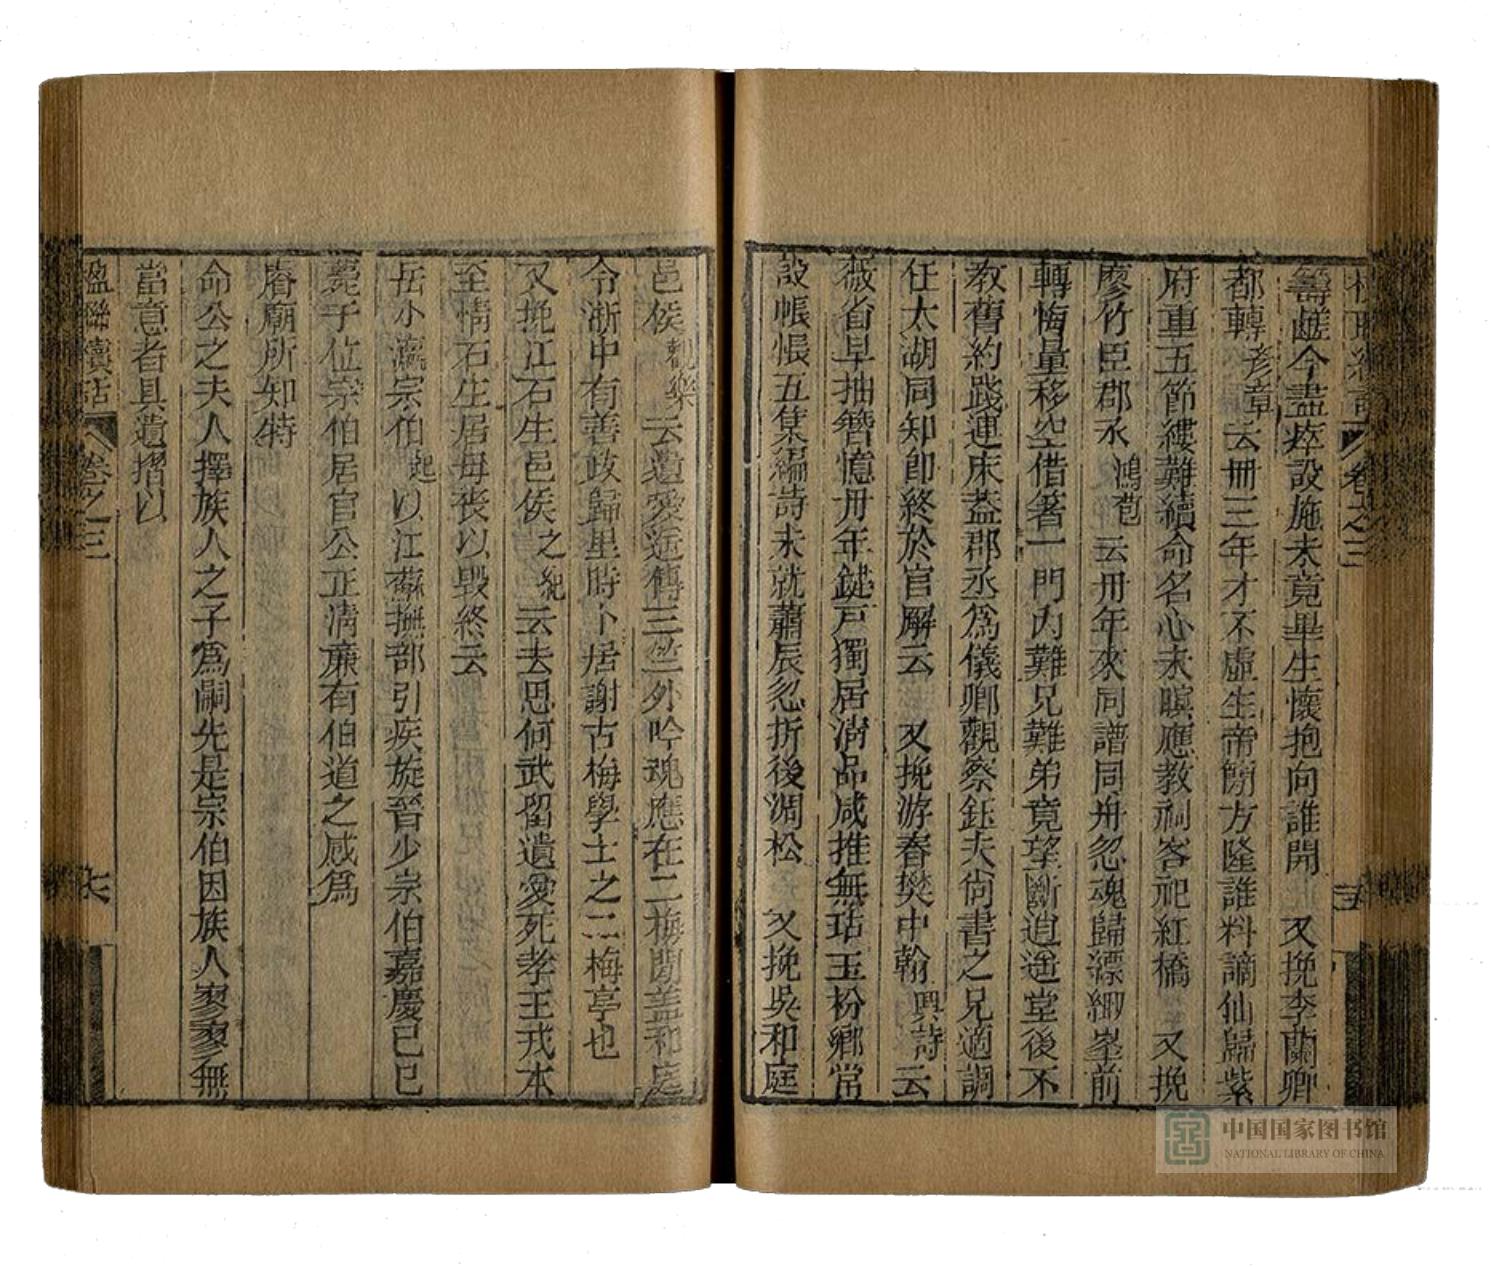 籌鹺今盡瘁設施未竟畢生懷抱向誰開 又挽李蘭卿
都轉彥章云卌三年才不虛生帝餙方隆誰料謫仙歸紫
府重五節縷難續命名心未瞑應教祠峇祀紅橋 又挽
廖竹臣郡丞鴻苞云卌年來同譜同舟忽魂歸縹緲峯前
轉悔量移空借箸一門內難兄難弟竟望斷逍遙堂後不
教舊約踐連床蓋郡丞爲儀卿觀察鈺夫尙書之兄適調
任太湖同知卽終於官廨云 又挽游春樊中翰興詩云
薇省早抽簪憶卅年鍵戸獨居淸品咸推無玷玉枌鄉常
設帳悵五集編詩未就蕭辰忽折後凋松 又挽吳和庭
邑侯觀樂云遺愛近傳三竺外吟魂應在二梅閒蓋和庭
令浙中有善政歸里時卜居謝古梅學士之二梅亭也
又挽江石生邑侯之紀云去思何武留遺愛死孝王戎本
至情石生居母喪以毀終云
岳小瀛宗伯起以江蘇撫部引疾旋晉少宗伯嘉慶己巳
薨于位宗伯居官公正淸廉有伯道之慼爲
睿廟所知特
命公之夫人擇族人之子爲嗣先是宗伯因族人寥寥無
當意者具遺摺以
楹聯續話 卷之三 七